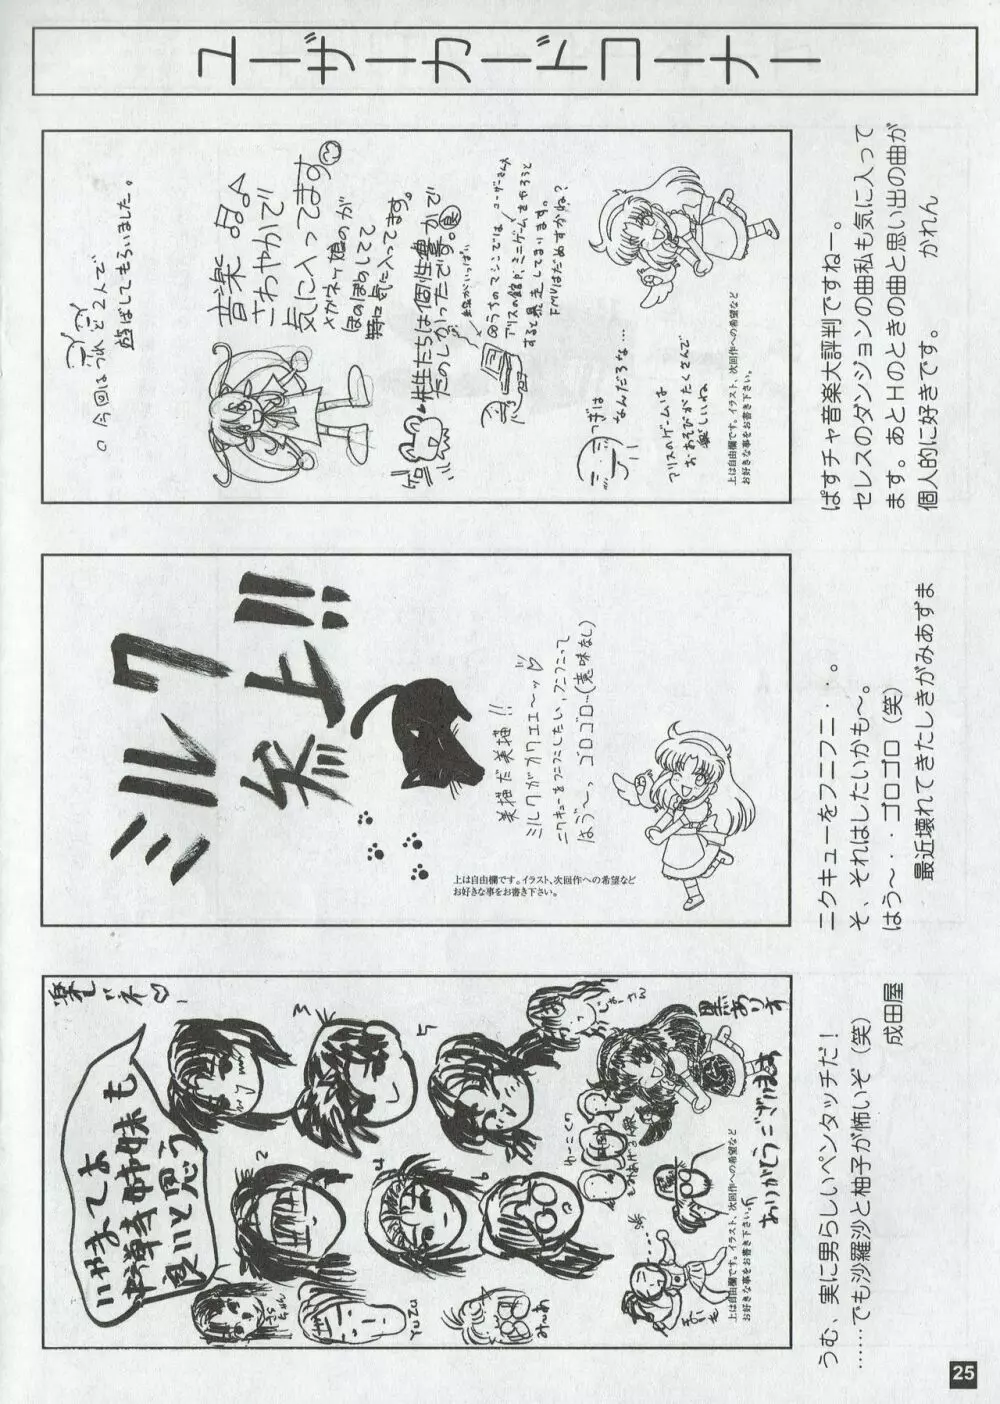 ユーザーカードコーナー
音楽
さわやかで
気に入ってます
メガネっ娘のが
ほのぼのしてて
特に気に入ってます。
○今回はつれと2人で
遊ばしてもらいました。
先生たちは個性豊かで
たのしかったです。
うちのマシンでは
アリスの館で、ミニゲームをやろうと
すると暴走してしまります。
FMVはだめすかね?
つぎは
なんだろな…
アリスのゲームは
おあそびがたくさんで
楽しいね
上は自由欄です。イラスト、次回作への希望など
お好きな事をお書き下さい。
ぱすチャ音楽大評判ですねー。
セレスのダンジョンの曲私も気に入って
ます。あとHのときの曲と思い出の曲が
個人的に好きです。 かれん
ミルク
参上!!
美描だ美描!!
ミルクがカワエエ〜ッ♡
ニクキューをフニフニしたい、フニフニって
はう〜っ ゴロゴロ〜(意味なし)
上は自由欄です。イラスト、次回作への希望など
お好きな事をお書き下さい。
ニクキューをフニフニ・・。
そ、それはしたいかも〜。
はう〜・・ゴロゴロ(笑)
最近壊れてきたしきがみあずま
いやまてよ
お導寺姉妹も
良いと思う
2
3
4
5
6
YUZU
みんあ
ゆーこくん
黒ありす
ありがとうございます
上は自由欄です。イラスト、次回作への希望など
お好きな事をお書き下さい。
うむ、実に男らしいペンタッチだ!
……でも沙羅沙と柚子が怖いぞ(笑)
成田屋
25